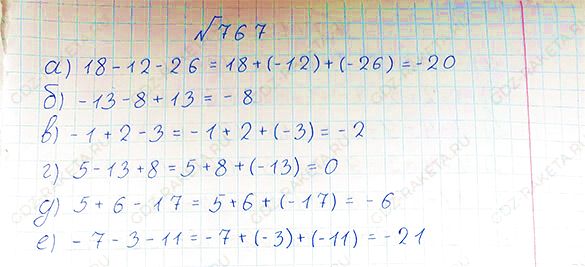 №767
а) 18 - 12 - 26 = 18 + (-12) + (-26) = -20
б) -13 - 8 + 13 = -8
в) -1 + 2 - 3 = -1 + 2 + (-3) = -2
г) 5 - 13 + 8 = 5 + 8 + (-13) = 0
д) 5 + 6 - 17 = 5 + 6 + (-17) = -6
е) -7 - 3 - 11 = -7 + (-3) + (-11) = -21